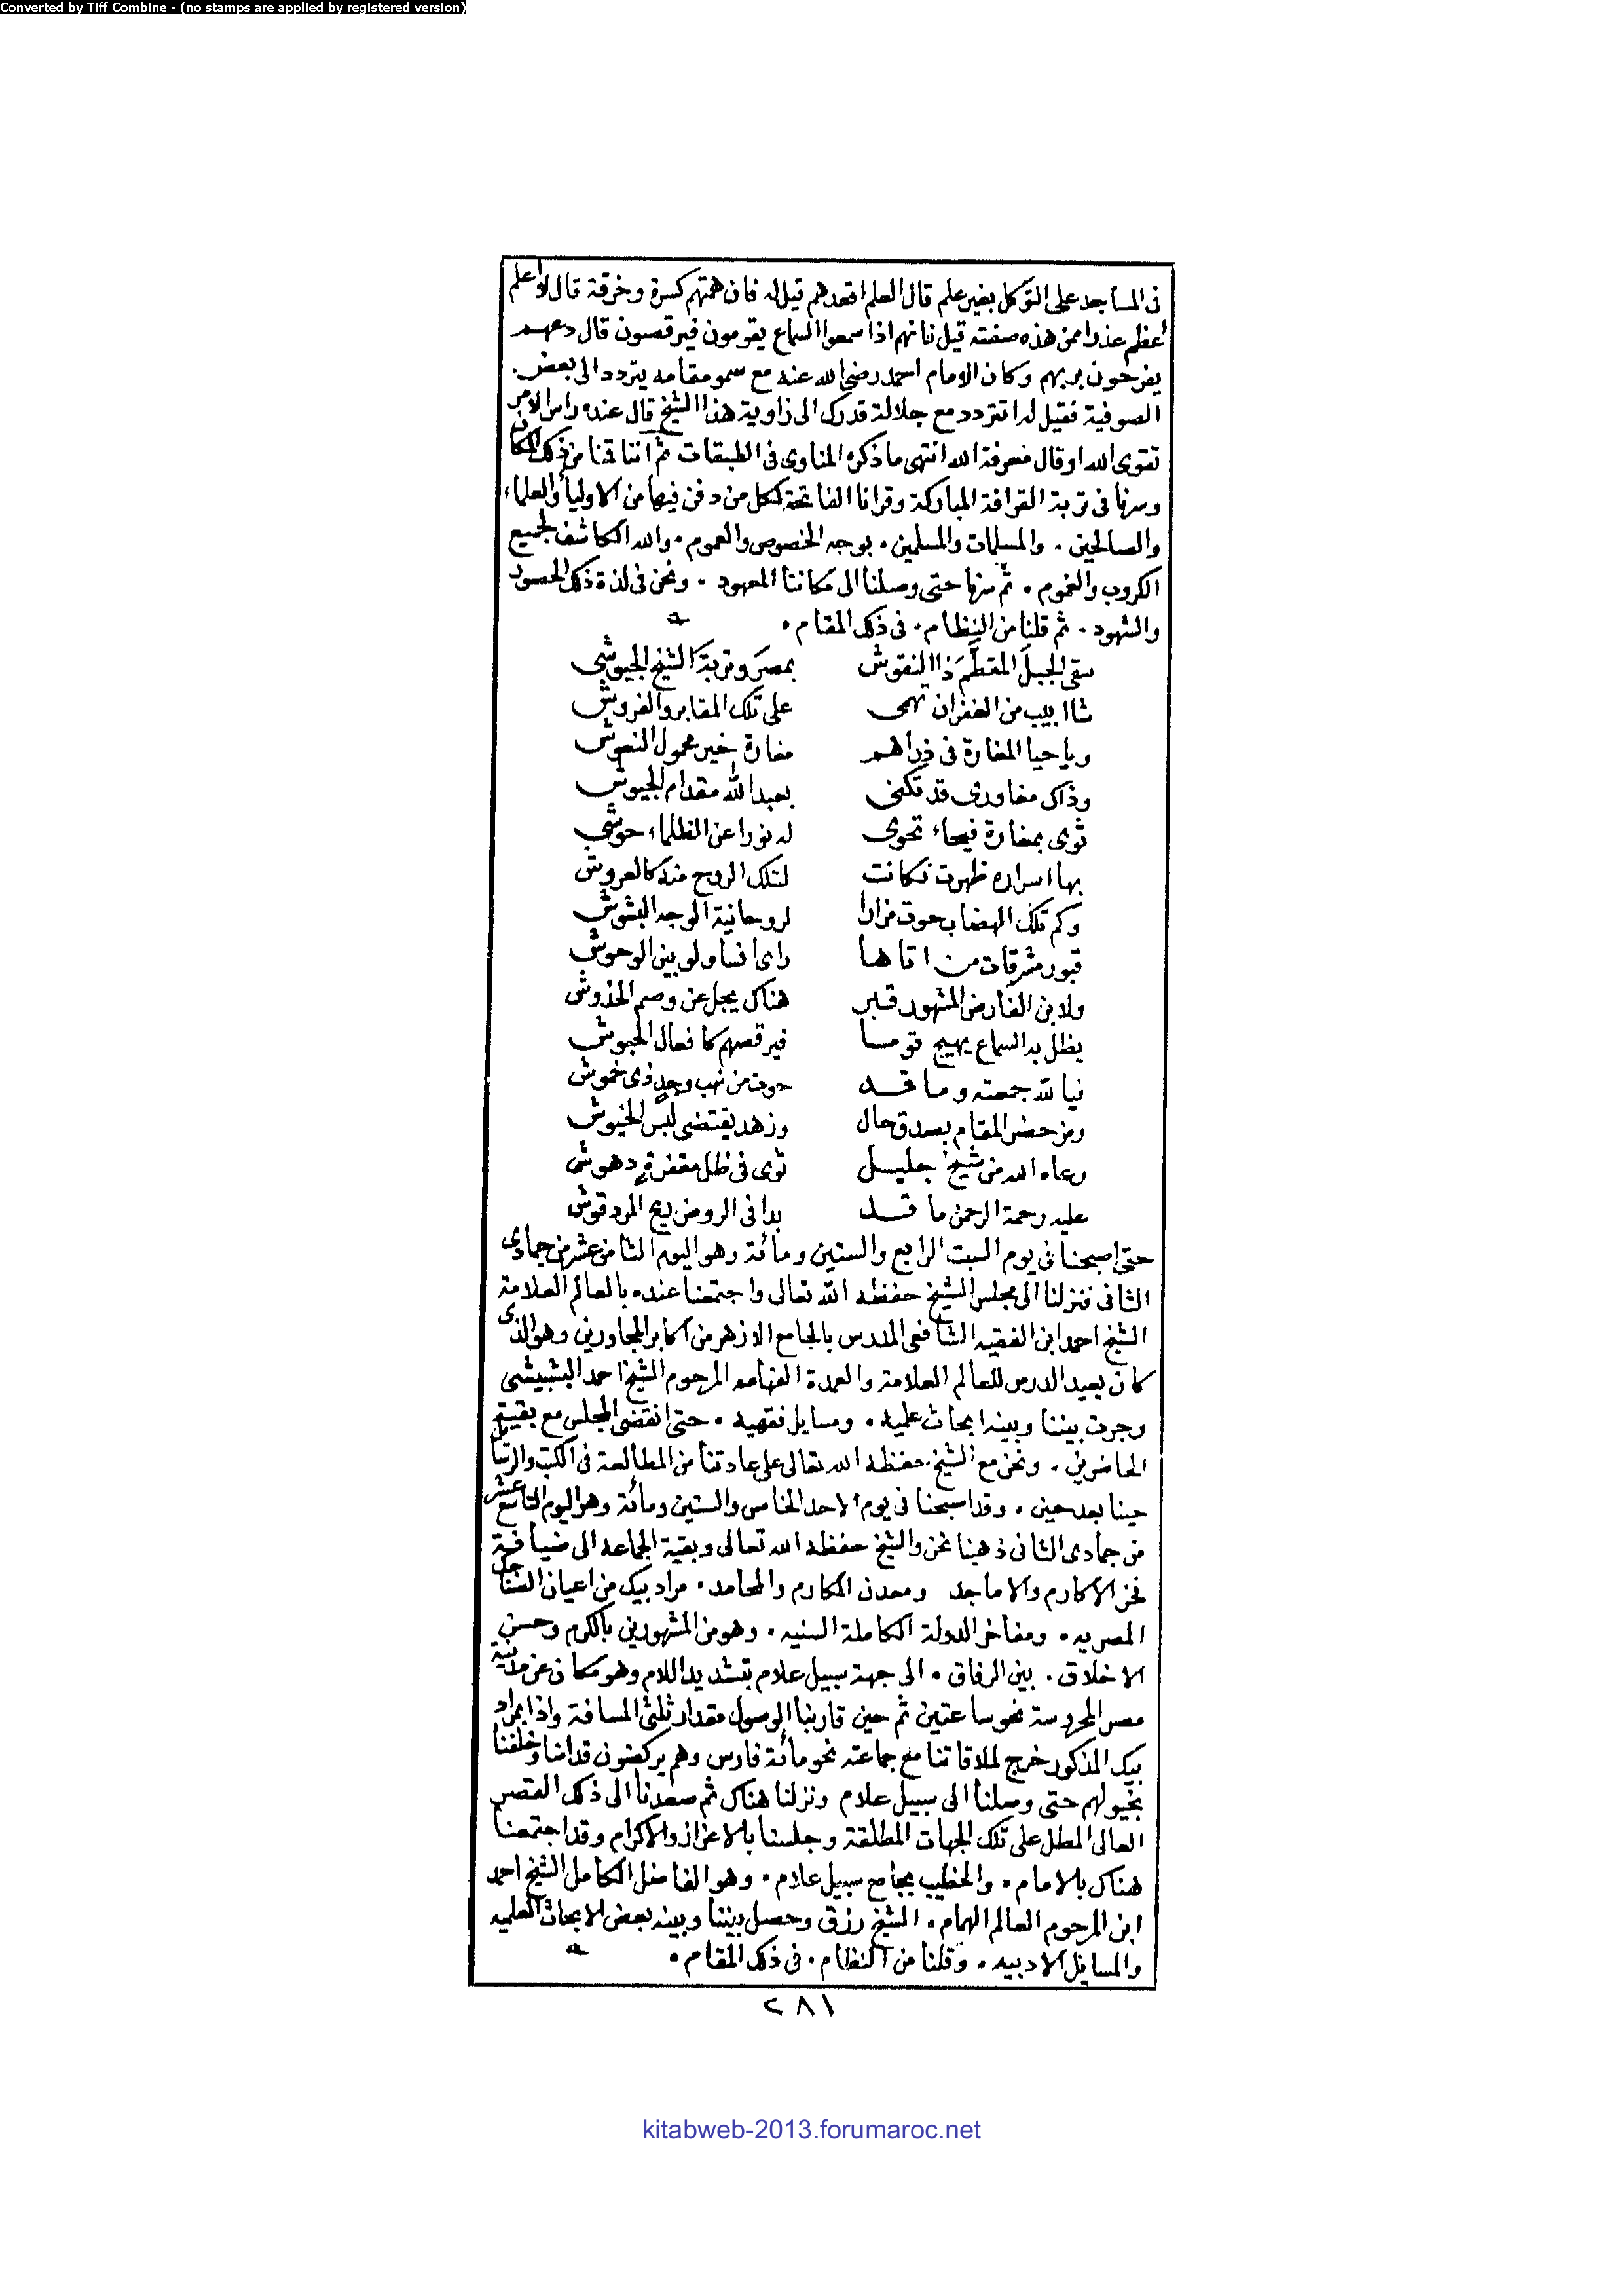 Converted by Tiff Combine - (no stamps are applied by registered version)
فى المساجد على التوكل بغير علم قال العلم اقعدهم قيل له فان همتهم كسرة وخرقة قال لا اعلم
اعظم عذرا ممن هذه صفته قيل فانهم اذا سمعوا السماع يقومون فيرقصون قال دعهم
يفرحون بربهم وكان الامام احمد رضى الله عنه مع سمو مقامه يتردد الى بعض
الصوفية فقيل له اتتردد مع جلالة قدرك الى زاوية هذا الشيخ قال عنده راس الامر
تقوى الله او قال معرفة الله انتهى ما ذكره المناوى فى الطبقات ثم اننا قمنا من ذلك المكان
وسرنا فى تربة القرافة المباركة وقرانا الفاتحة لكل من دفن فيها من الاوليا والعلماء
والصالحين ۰ والمسلمات والمسلمين ۰ بوجه الخصوص والعموم ۰ والله الكاشف لجميع
الكروب والغموم ۰ ثم سرنا حتى وصلنا الى مكاننا المعهود ۰ ونحن فى لذة ذلك
والشهود ۰ ثم قلنا من النظام ۰ فى ذلك المقام ۰
سقى الجبل المقطم ذا النقوش بمصر وتربة الشيخ الجيوشى
شاابيب من الغفران تهمى على تلك المقابر والفروش
وياحيا المغارة فى ذراهم مغارة خير محمول النعوش
وذاك مغاورى قد تكنى بعبد الله مقدام الجيوش
ثوى بمغارة فيحاء تحوى له نورا عن الظلماء حوشى
بها اسراره ظهرت فكانت لتلك الروح منه كالعروش
وكم تلك الهضاب حوت مزارا لروحانية الوجه البشوش
قبور مشرقات من اتاها راى انسا ولو بين الوحوش
ولابن الفارض المشهور قبر هناك يجل عن وصم الخدوش
يظل به السماع يهيج قوما فيرقصهم كافعال الحبوش
فيالله جمعته وما قد حوت من نهب وجد ذى خموش
ومن حضر المقام بصدق حال وزهد يقتضى لبس الخيوش
رعاه الله من شيخ جليل ثوى فى ظل مقفرة دهوش
عليه رحمة الرحمن ما قد بدا فى الروض ريح المردقوش
حتى اصبحنا فى يوم السبت الرابع والستين ومائة وهو اليوم الثامن عشر من جمادى
الثانى فنزلنا الى مجلس الشيخ حفظه الله تعالى واجتمعنا عنده بالعالم العلامة
الشيخ احمد ابن الفقيه الشافعى المدرس بالجامع الازهر من اكابر المجاورين وهو الذى
كان يعيد الدرس للعالم العلامة والعمدة الفهامه المرحوم الشيخ احمد البشبيشى
وجرت بيننا وبينه ابحاث علميه ۰ ومسايل فقهيه ۰ حتى انقضى المجلس مع بقية
الحاضرين ۰ ونحن مع الشيخ حفظه الله تعالى على عادتنا من المطالعة فى الكتب والرسائل
حينا بعد حين ۰ وقد اصبحنا فى يوم الاحد الخامس والستين ومائة وهو اليوم التاسع عشر
من جمادى الثانى ذهبنا نحن والشيخ حفظه الله تعالى وبقية الجماعه الى ضيافة
فخر الاكارم والاماجد ومعدن المكارم والمحامد ۰ مراد بيك من اعيان السناجق
المصريه ۰ ومفاخر الدولة الكاملة السنيه ۰ وهو من المشهورين بالكرم وحسن
الاخلاق ۰ بين الرفاق ۰ الى جهة سبيل علام بتشديد اللام وهو مكان عن مدينة
مصر المحروسة نحو ساعتين ثم حين قاربنا الوصول مقدار ثلثى المسافة واذا بمراد
بيك المذكور خرج لملاقاتنا مع جماعته نحو مائة فارس وهم يركضون قدامنا وخلفنا
بخيولهم حتى وصلنا الى سبيل علام ونزلنا هناك ثم صعدنا الى ذلك القصر
العالى المطل على تلك الجهات المطلقة وجلسنا بالاعزاز والاكرام وقد اجتمعنا
هناك بالامام ۰ والخطيب بجامع سبيل علام ۰ وهو الفاضل الكامل الشيخ احمد
ابن المرحوم العالم الهمام ۰ الشيخ رزق وحصل بيننا وبينه بعض الابحاث العلميه
والمسايل الادبيه ۰ وقلنا من النظام ۰ فى ذلك المقام ۰
٢٨١
kitabweb-2013.forumaroc.net